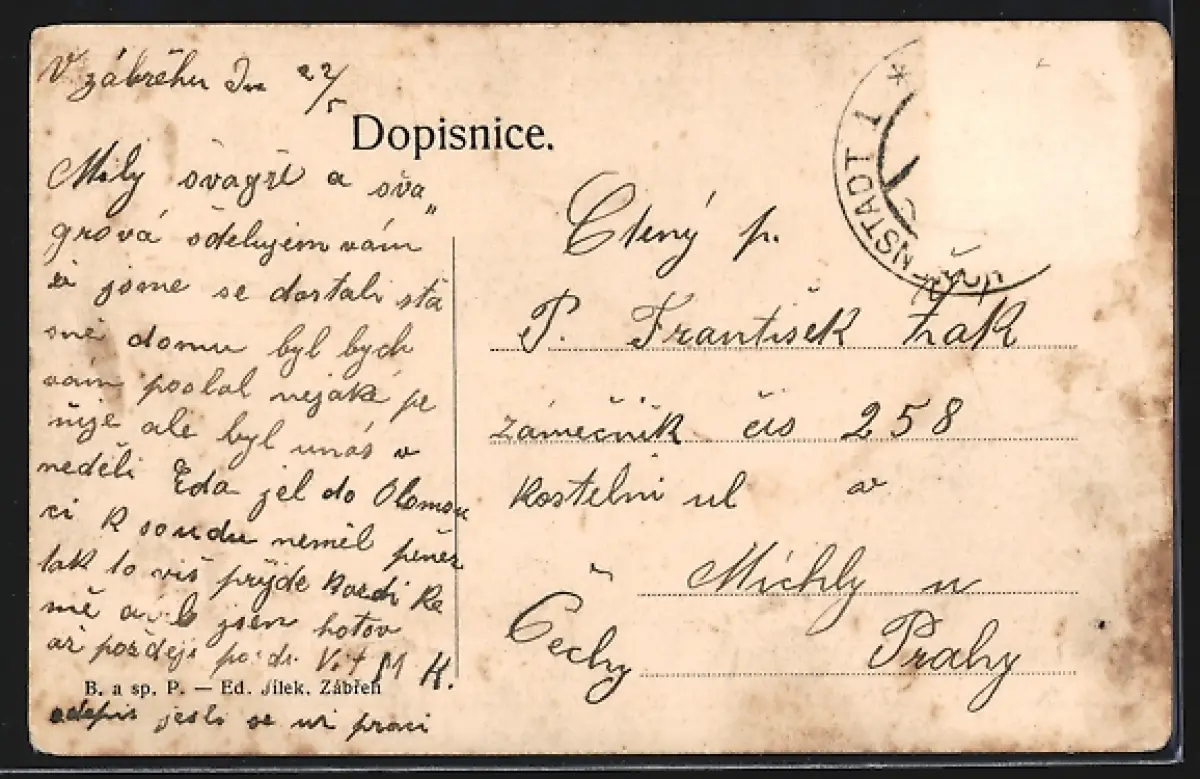 V zábřehu 22/5
Dopisnice.
Milý švagře a šva„
grová sdelujem vám
že jsme se dostali šťa
sně domu byl bych
vám poslal nejaké pe
níze ale byl unás v
neděli Eda jel do Olomou
ci k soudu neměl peněz
tak to víš přijde každí ke
mě a jsem hotov
až pozdějí V. M K.
B. a sp. P. — Ed. Jílek, Zábřeh
odepis jesli se ui praci
NSTADT 1 *
Ctený p.
P. František Žák
zámečník čis 258
Kostelni ul v
Míchly u
Prahy
Čechy